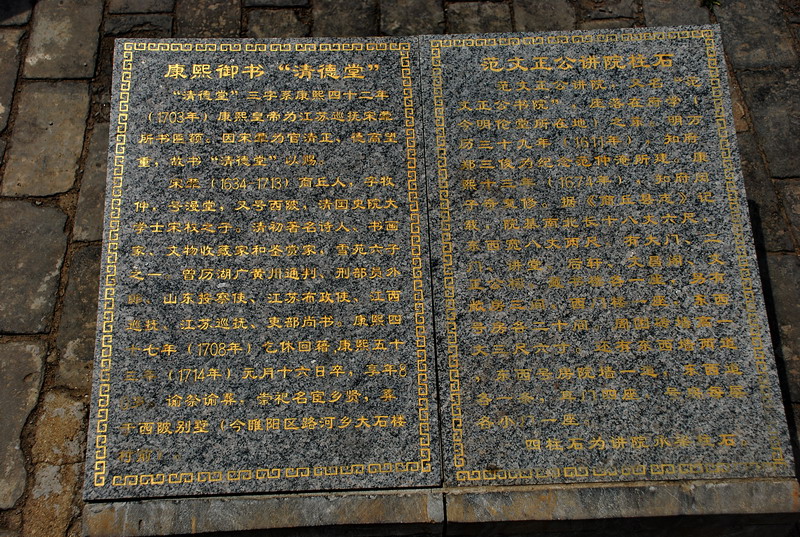 康熙御书“清德堂”
“清德堂”三字系康熙四十二年
（1703年）康熙皇帝为江苏巡抚宋荦
所书匾额。因宋荦为官清正、德高望
重，故书“清德堂”以赐。
宋荦（1634-1713）商丘人，字牧
仲，号漫堂，又号西陂，清国史院大
学士宋权之子。清初著名诗人、书画
家、文物收藏家和鉴赏家，雪苑六子
之一。曾历湖广黄州通判、刑部员外
郎、山东按察使、江苏布政使、江西
巡抚、江苏巡抚、吏部尚书。康熙四
十七年（1708年）乞休回籍，康熙五十
三年（1714年）元月十六日卒，享年8
谕祭谕葬，崇祀名宦乡贤，葬
于西陂别墅（今睢阳区路河乡大石桥
范文正公讲院柱石
范文正公讲院，又名“范
文正公书院”，座落在府学（
今明伦堂所在地）之东，明万
历三十九年（1611年），知府
郑三俊为纪念范仲淹所建，康
熙十三年（1674年），知府闵
子奇复修。据《商丘县志》记
载，院基南北长十八丈六尺，
东西宽八丈两尺，有大门、二
门、讲堂、后轩、文昌阁、文
三间，西
号房各二十间，周围
丈三尺六寸，还有东西墙两道
，东西号房院墙一道，东西道
各一条，
各小门一座。
四柱石为讲院